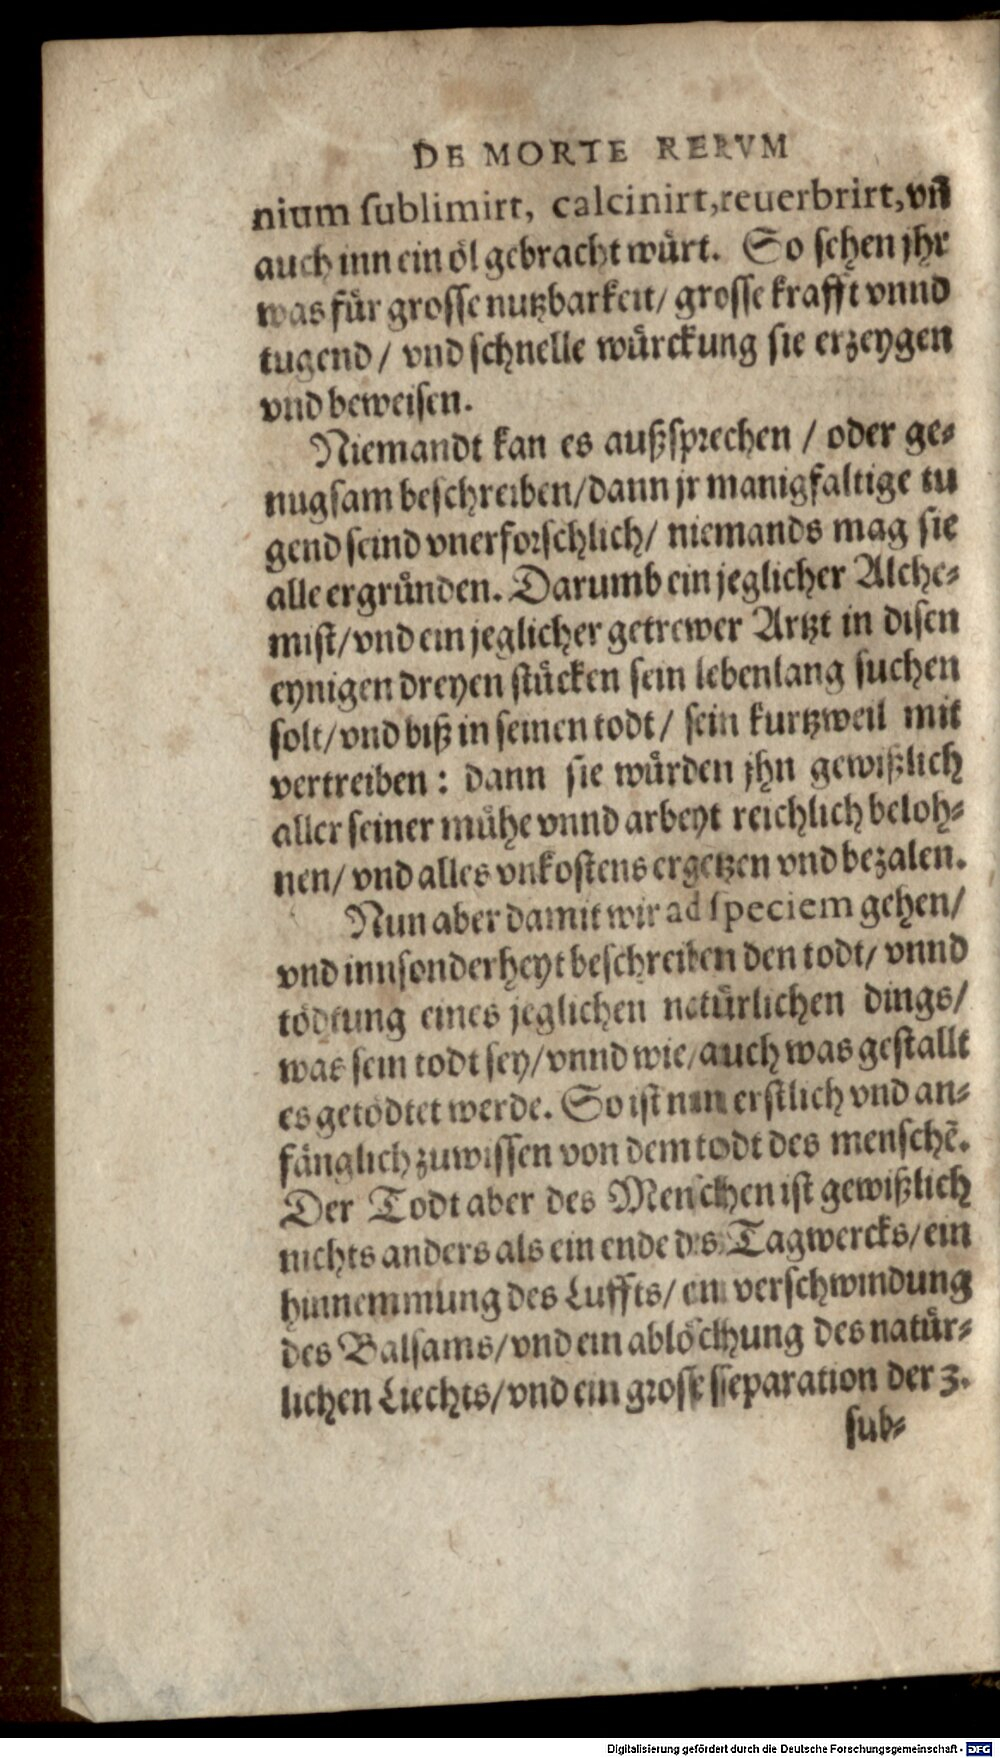 DE MORTE RERVM
nium sublimirt, calcinirt, reuerbrirt, vñ
auch inn ein öl gebracht würt. So sehen jhr
was für grosse nutzbarkeit/ grosse krafft vnnd
tugend/ vnd schnelle würckung sie erzeygen
vnd beweisen.
Niemandt kan es außsprechen / oder ge-
nugsam beschreiben/ dann jr manigfaltige tu
gend seind vnerforschlich/ niemands mag sie
alle ergründen. Darumb ein jeglicher Alche-
mist/ vnd ein jeglicher getrewer Artzt in disen
eynigen dreyen stücken sein lebenlang suchen
solt/ vnd biß in seinen todt/ sein kurtzweil mit
vertreiben: dann sie würden jhn gewißlich
aller seiner mühe vnnd arbeyt reichlich beloh-
nen/ vnd alles vnkostens ergetzen vnd bezalen.
Nun aber damit wir ad speciem gehen/
vnd innsonderheyt beschreiben den todt/ vnnd
tödtung eines jeglichen natürlichen dings/
was sein todt sey/ vnnd wie/ auch was gestallt
es getödtet werde. So ist nun erstlich vnd an-
fänglich zuwissen von dem todt des menschẽ.
Der Todt aber des Menschen ist gewißlich
nichts anders als ein ende des Tagwercks/ ein
hinnemmung des Luffts/ ein verschwindung
des Balsams/ vnd ein ablöschung des natür-
lichen Liechts/ vnd ein grosse separation der 3.
sub-
Digitalisierung gefördert durch die Deutsche Forschungsgemeinschaft - DFG